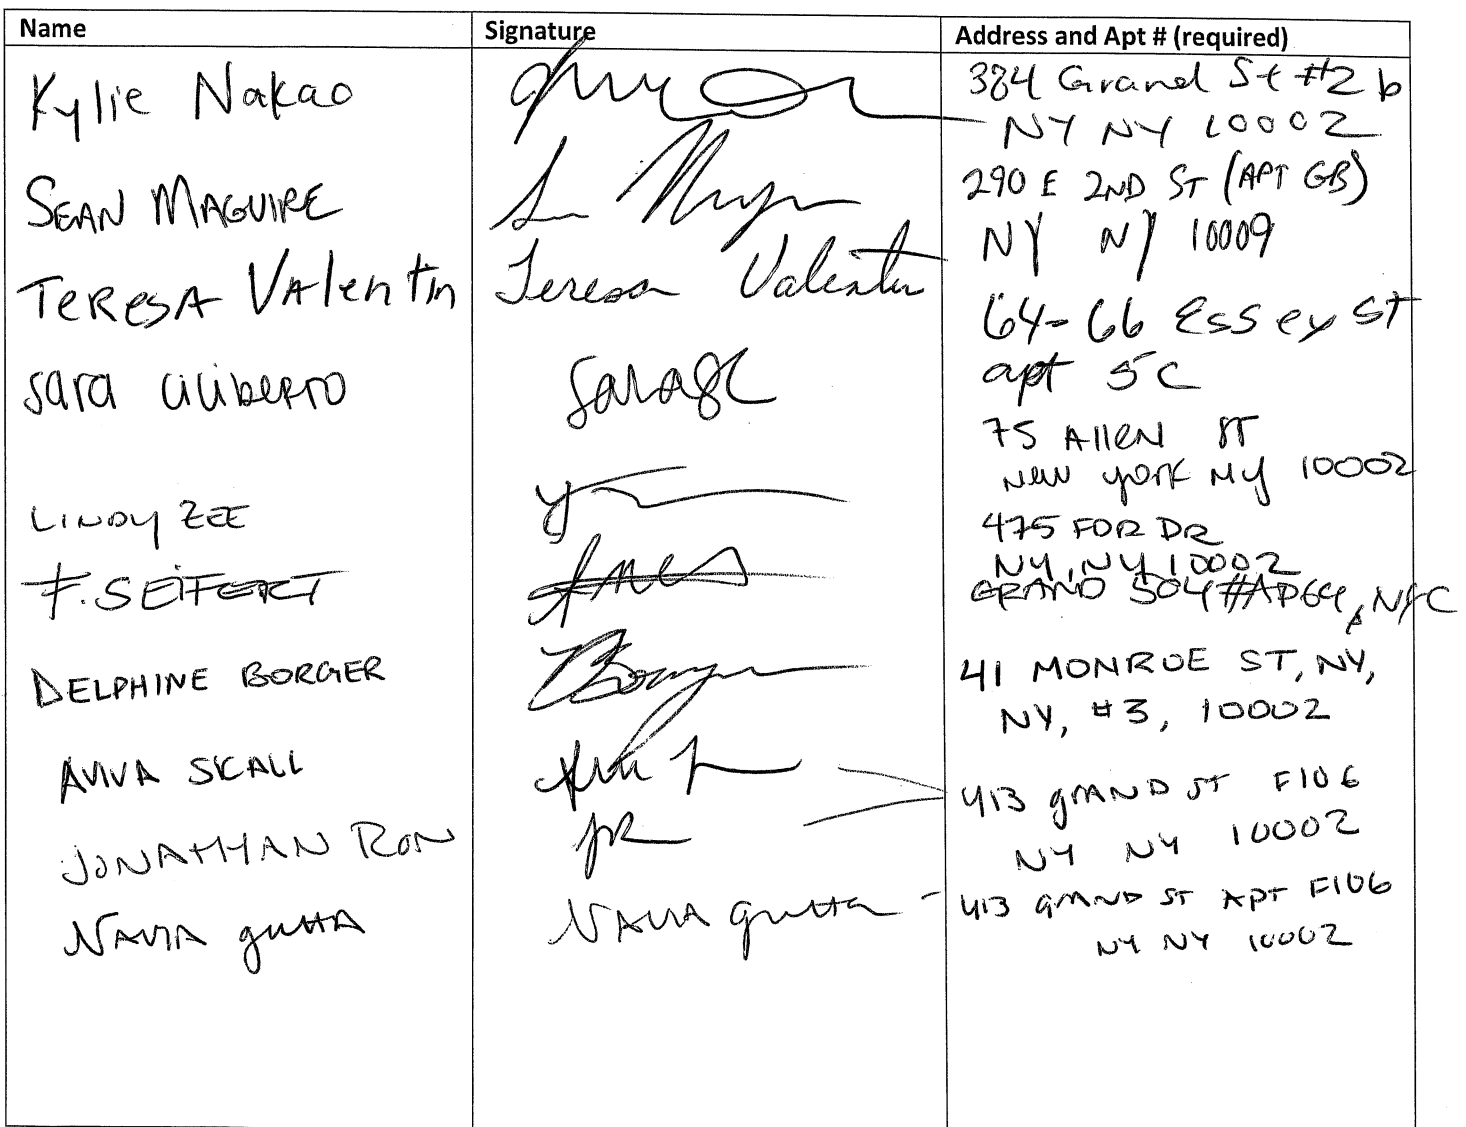 Name Signature Address and Apt # (required)
Kylie Nakao 384 Grand St #2b
NY NY 10002
SEAN MAGUIRE 290 E 2ND ST (APT GB)
NY NY 10009
TERESA Valentin Teresa Valentin 64-66 Essex ST
apt 5C
Sara Ciliberto 75 Allen ST
New york NY 10002
LINDY ZEE 475 FDR DR
NY, NY 10002
F. SEIFERT GRAND 504 #APG4, NYC
DELPHINE BORGER 41 MONROE ST, NY,
NY, #3, 10002
AVIVA SKALL 413 grAND ST F106
NY NY 10002
JONATHAN RON JR
NAVIA gutta NAVIA gutta 413 grAND ST APT F106
NY NY 10002